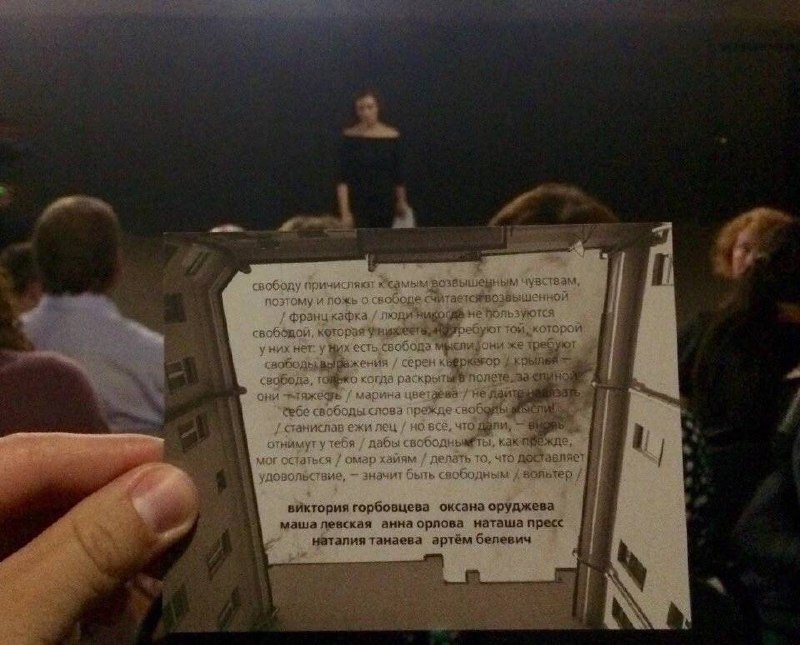 свободу причисляют к самым возвышенным чувствам,
поэтому и ложь о свободе считается возвышенной
/ франц кафка / люди никогда не пользуются
свободой, которая у них есть, но требуют той, которой
у них нет: у них есть свобода мысли, они же требуют
свободы выражения / серен кьеркегор / крылья —
свобода, только когда раскрыты в полете, за спиной
они — тяжесть / марина цветаева / не дайте навязать
себе свободы слова прежде свободы мысли!
/ станислав ежи лец / но все, что дали, — вновь
отнимут у тебя / дабы свободным ты, как прежде,
мог остаться / омар хайям / делать то, что доставляет
удовольствие, — значит быть свободным / вольтер /
виктория горбовцева оксана оруджева
маша левская анна орлова наташа пресс
наталия танаева артём белевич